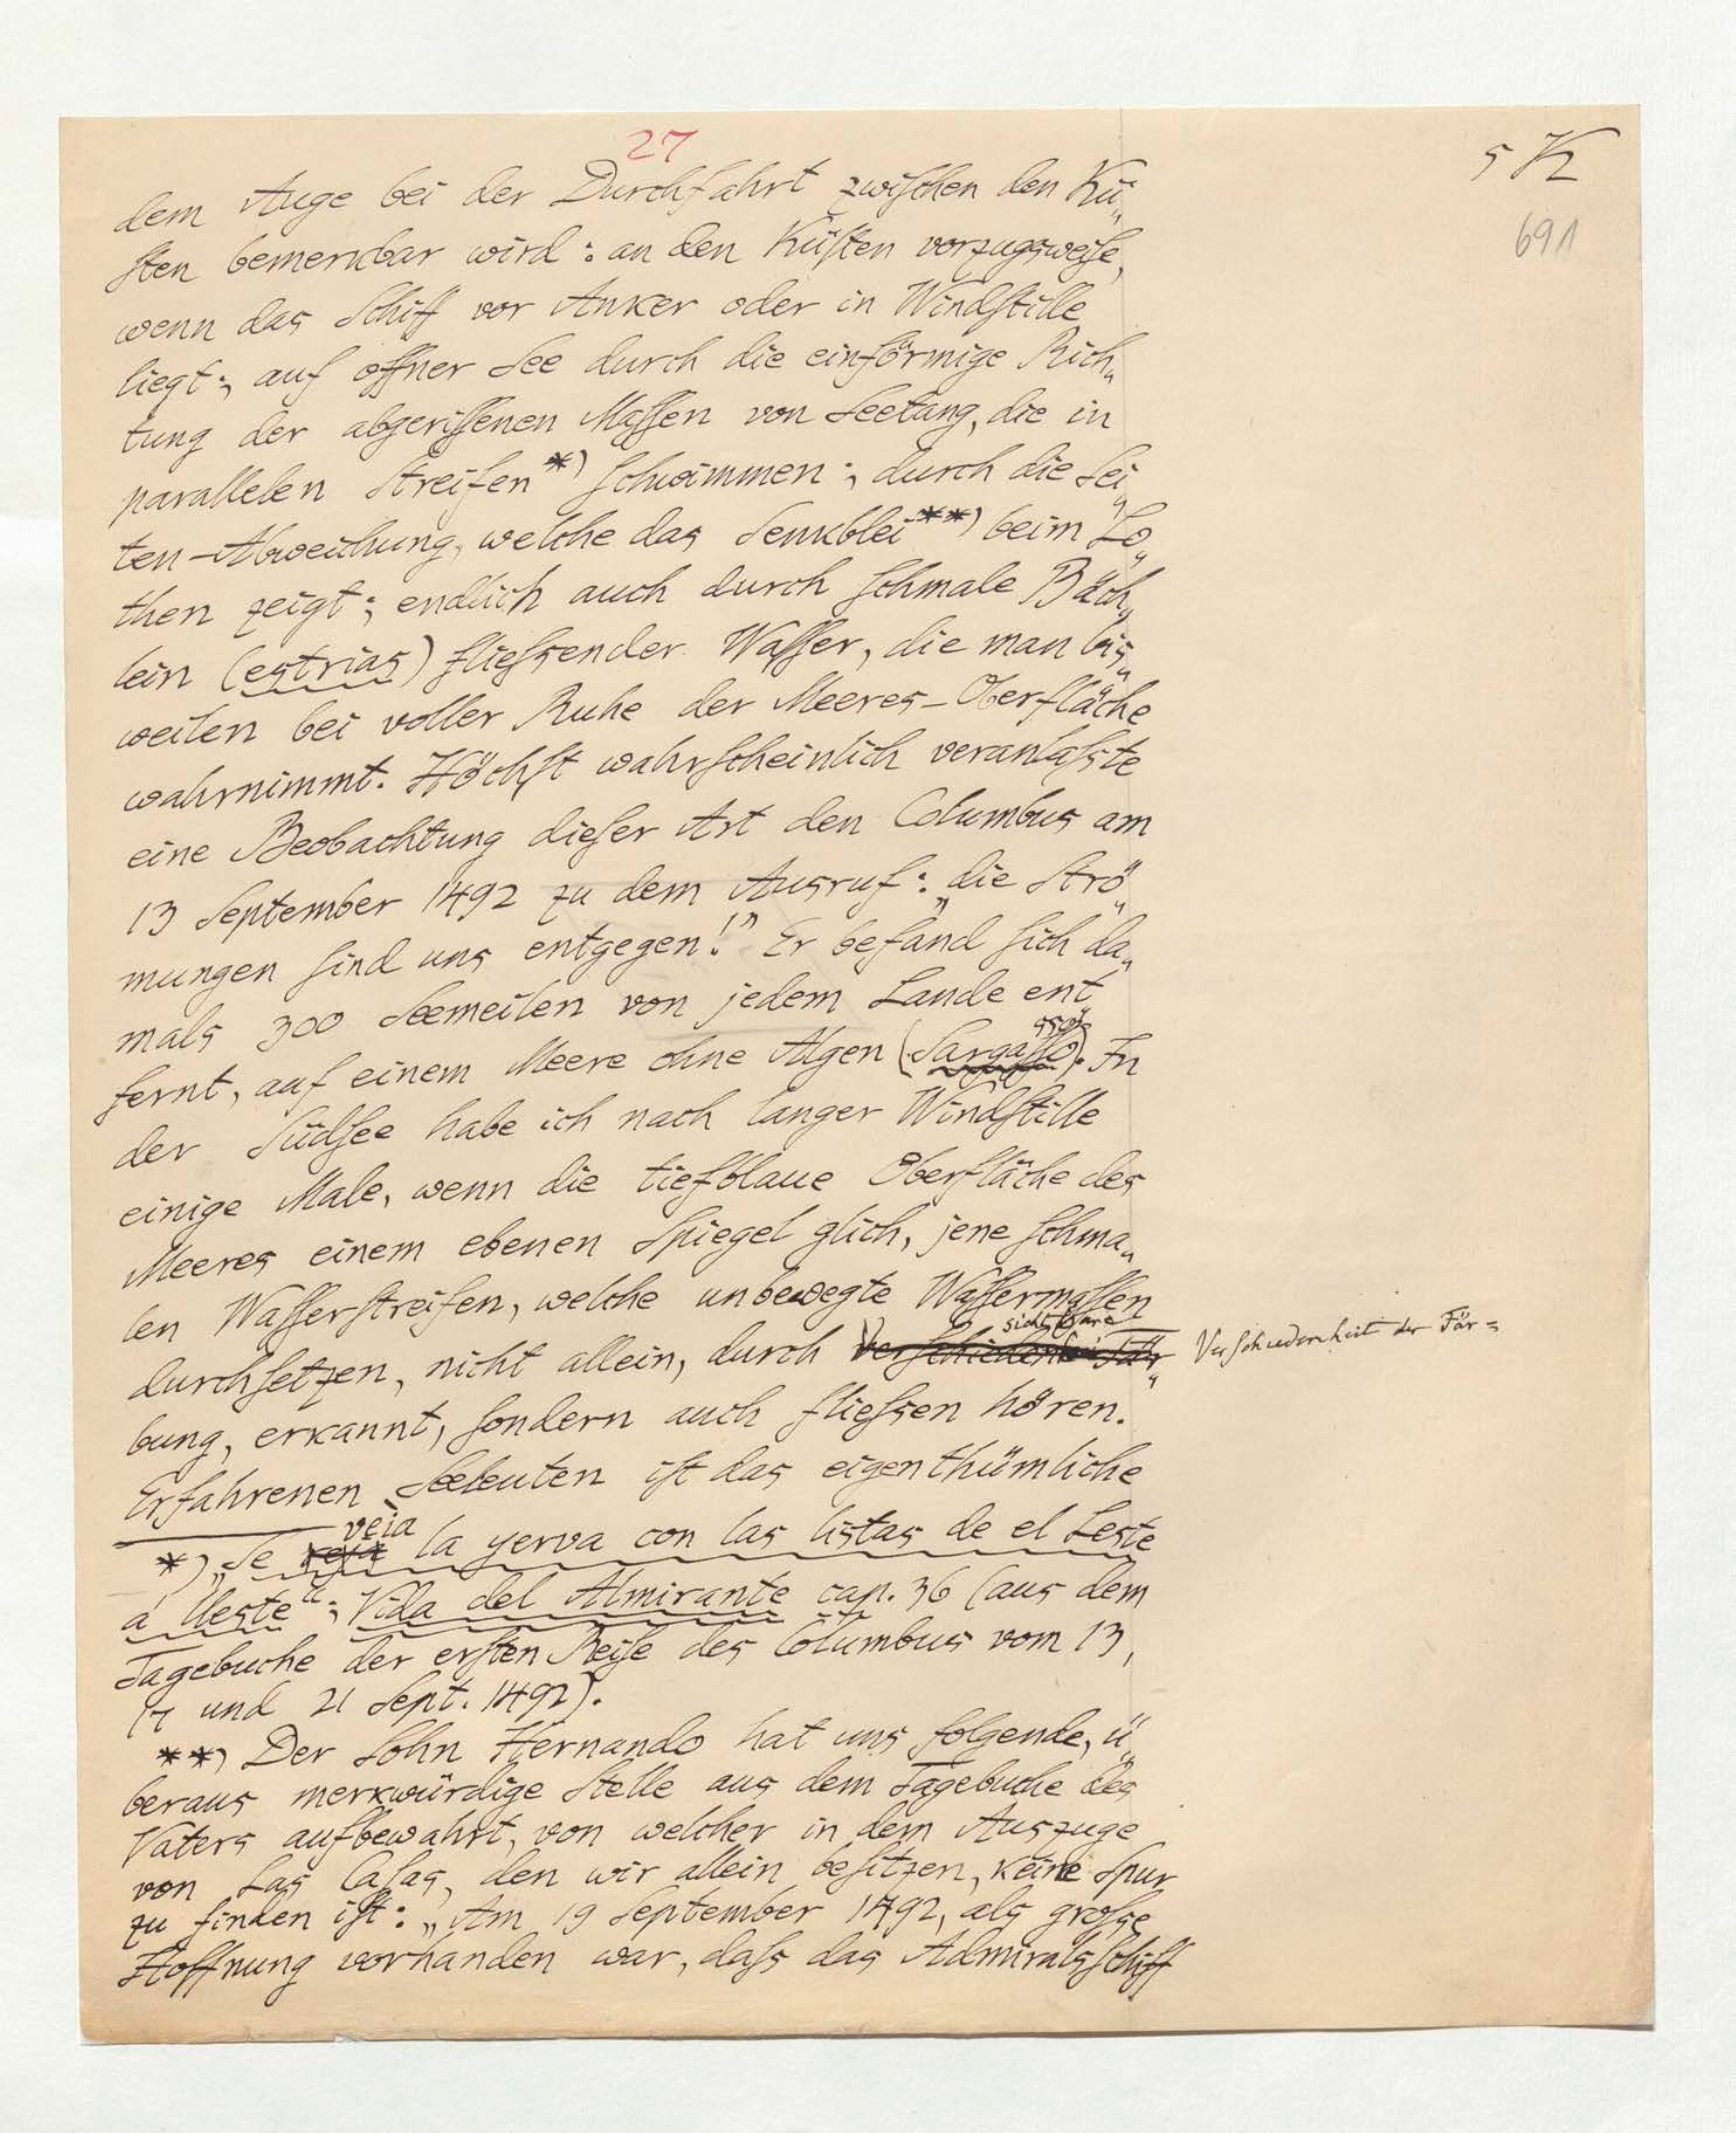 27
5 K
691
dem Auge bei der Durchfahrt zwiſchen den Kü„
ſten bemerkbar wird: an den Küſten vorzugsweiſe,
wenn das Schiff vor Anker oder in Windſtille
liegt; auf offner See durch die einförmige Rich„
tung der abgeriſſenen Maſſen von Seetang, die in
parallelen Streifen *) ſchwimmen; durch die Sei„
ten-Abweichung, welche das Senkblei **) beim Lo„
then zeigt; endlich auch durch ſchmale Bäch„
lein (estrias) flieſsender Waſſer, die man bis„
weilen bei voller Ruhe der Meeres-Oberfläche
wahrnimmt. Höchſt wahrſcheinlich veranlaſste
eine Beobachtung dieſer Art den Columbus am
13 September 1492 zu dem Ausruf: „die Strö„
mungen ſind uns entgegen!” Er befand ſich da„
mals 300 Seemeilen von jedem Lande ent
fernt, auf einem Meere ohne Algen (Sargaſſo). In
der Südſee habe ich nach langer Windſtille
einige Male, wenn die tiefblaue Oberfläche des
Meeres einem ebenen Spiegel glich, jene ſchma„
len Waſſerſtreifen, welche unbewegte Waſſermaſſen
sichtbare
durchſetzen, nicht allein, durch Verſchiedenheit Fär„ Verſchiedenheit der Fär=
bung, erkannt, ſondern auch flieſsen hören.
Erfahrenen Seeleuten iſt das eigenthümliche
veia
*) „Se la yerva con las listas de el Leste
á Ueste“; Vida del Almirante cap. 36 (aus dem
Tagebuche der erſten Reiſe des Columbus vom 13,
17 und 21 Sept. 1492).
**) Der Sohn Hernando hat uns folgende, ü„
beraus merkwürdige Stelle aus dem Tagebuche des
Vaters aufbewahrt, von welcher in dem Auszuge
von Las Caſas, den wir allein beſitzen, keine Spur
zu finden iſt: „Am 19 September 1492, als groſse
Hoffnung vorhanden war, daſs das Admiralsſchiff